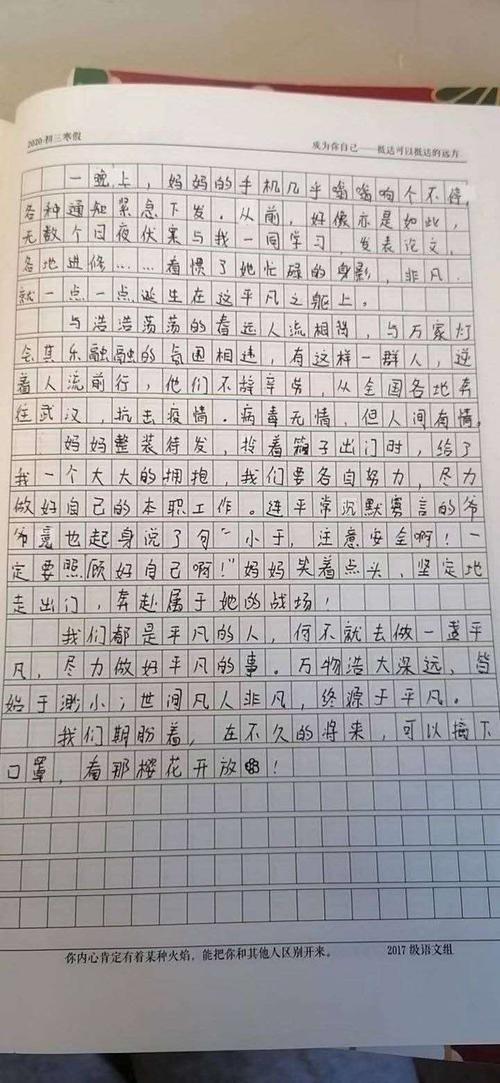 2020·初三寒假
成为你自己——抵达可以抵达的远方
一晚上，妈妈的手机几乎嗡嗡响个不停，
各种通知紧急下发。从前，好像亦是如此，
无数个日夜伏案与我一同学习、发表论文，
各地进修……看惯了她忙碌的身影，非凡，
就一点一点诞生在这平凡之躯上。
与浩浩荡荡的春运人流相背，与万家灯
会其乐融融的氛围相违，有这样一群人，逆
着人流前行，他们不辞辛劳，从全国各地奔
往武汉，抗击疫情。病毒无情，但人间有情。
妈妈整装待发，拎着箱子出门时，给了
我一个大大的拥抱，我们要各自努力，尽力
做好自己的本职工作。连平常沉默寡言的爷
爷竟也起身说了句“小于，注意安全啊！一
定要照顾好自己啊！”妈妈笑着点头，坚定地
走出门，奔赴属于她的战场！
我们都是平凡的人，何不就去做一盏平
凡，尽力做好平凡的事。万物浩大深远，皆
始于渺小；世间凡人非凡，终源于平凡。
我们期盼着，在不久的将来，可以摘下
口罩，看那樱花开放！
你内心肯定有着某种火焰，能把你和其他人区别开来。
2017级语文组